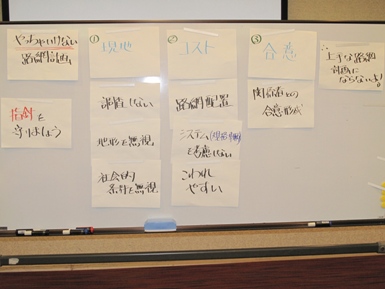 やっちゃいけない
路網計画
指針を
守りましょう
① 現地
踏査しない
地形を無視
社会的
条件を無視
② コスト
路網配置
システム
を考慮しない
こわれ
やすい
③ 合意
関係者との
合意形成
∴
上手な路網
計画に
ならないよ!